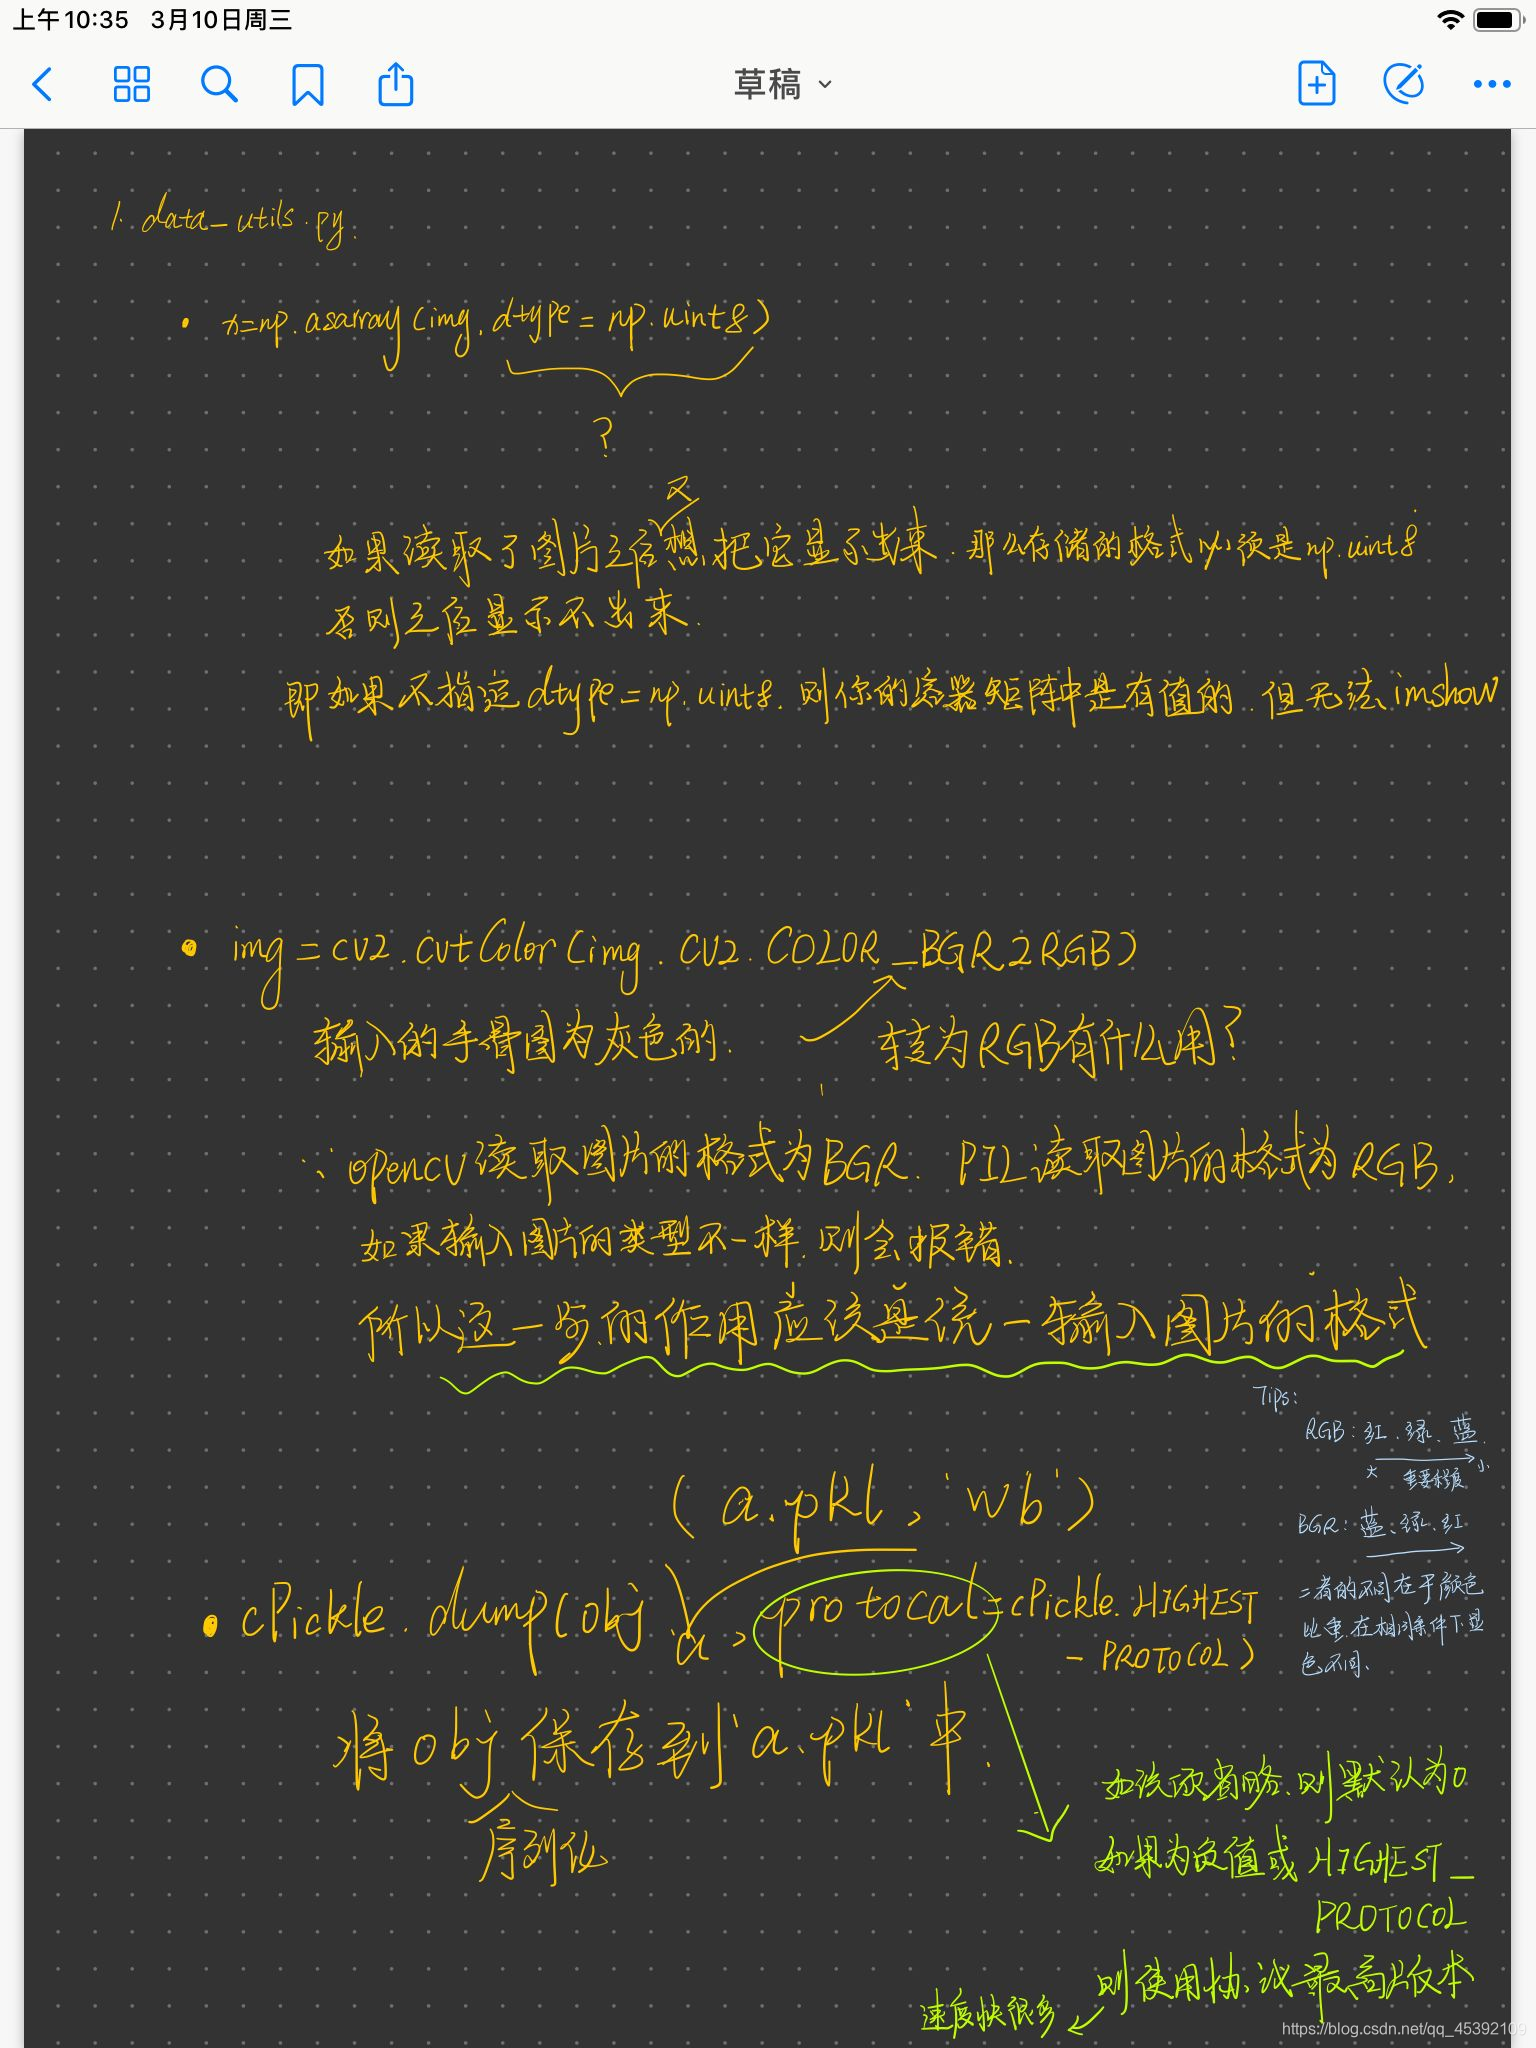 上午10:35 3月10日周三
草稿
1. data_utils.py.
• x=np.asarray(img, dtype=np.uint8)
?
又
如果读取了图片之后想把它显示出来,那么存储的格式必须是np.uint8
否则之后显示不出来.
即如果不指定dtype=np.uint8,则你的容器矩阵中是有值的,但无法imshow
• img=cv2.cvtColor(img, cv2.COLOR_BGR2RGB)
输入的手骨图为灰色的. 转为RGB有什么用?
∵opencv读取图片的格式为BGR. PIL读取图片的格式为RGB,
如果输入图片的类型不一样,则会报错.
所以这一步的作用应该是统一输入图片的格式
Tips:
RGB:红、绿、蓝.
大 重要程度 小
BGR:蓝、绿、红
二者的不同在于颜色
比重.在相同条件下显
色不同.
(a.pkl, 'wb')
• cPickle.dump(obj, a, protocal=cPickle.HIGHEST
_PROTOCOL)
将obj保存到'a.pkl'中.
序列化
如该项省略,则默认为0
如果为负值或HIGHEST_
PROTOCOL
则使用协议最高版本
速度快很多
https://blog.csdn.net/qq_45392109